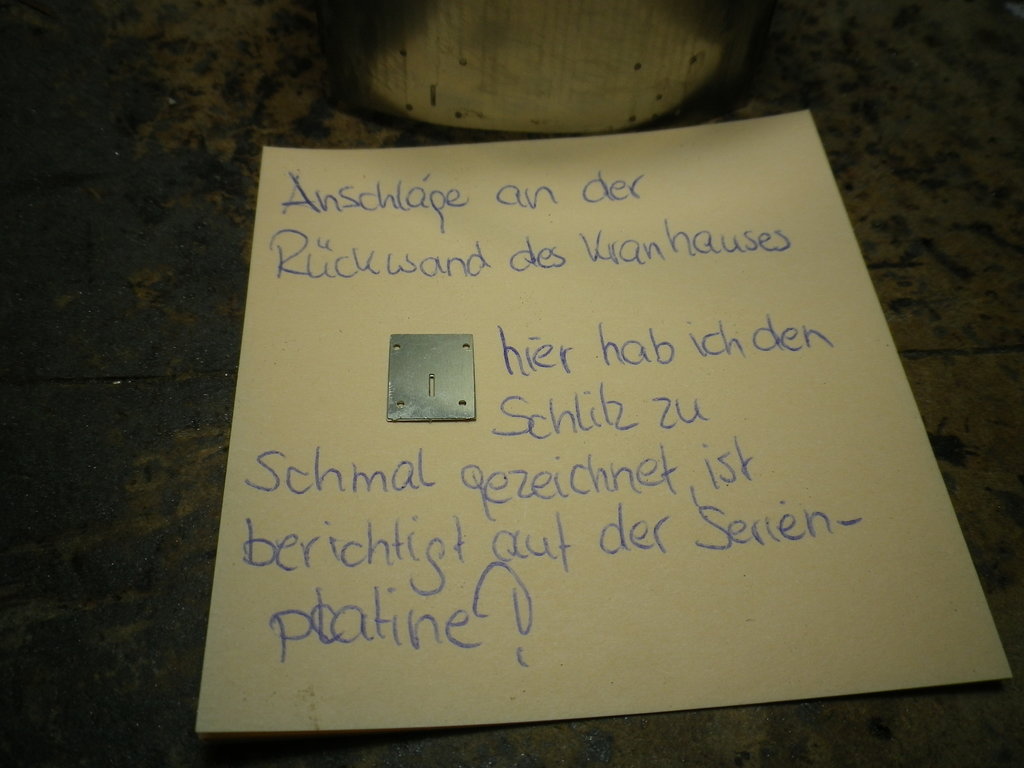 Anschläge an der
Rückwand des Kranhauses
hier hab ich den
Schlitz zu
Schmal gezeichnet, ist
berichtigt auf der Serien-
platine!